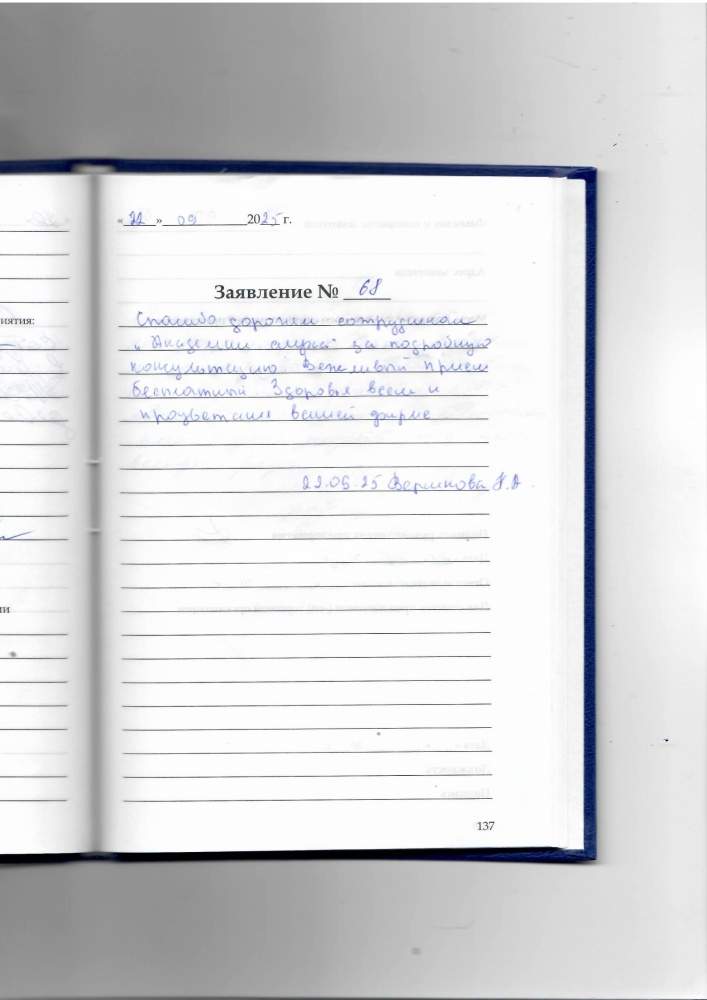 «22» 09 2025 г.
Заявление № 68
иятия:
Спасибо дорогим сотрудникам
"Академии слуха" за подробную
консультацию. Вежливый прием
бесплатный. Здоровья всем и
процветания вашей фирме
22.09.25
ии
137